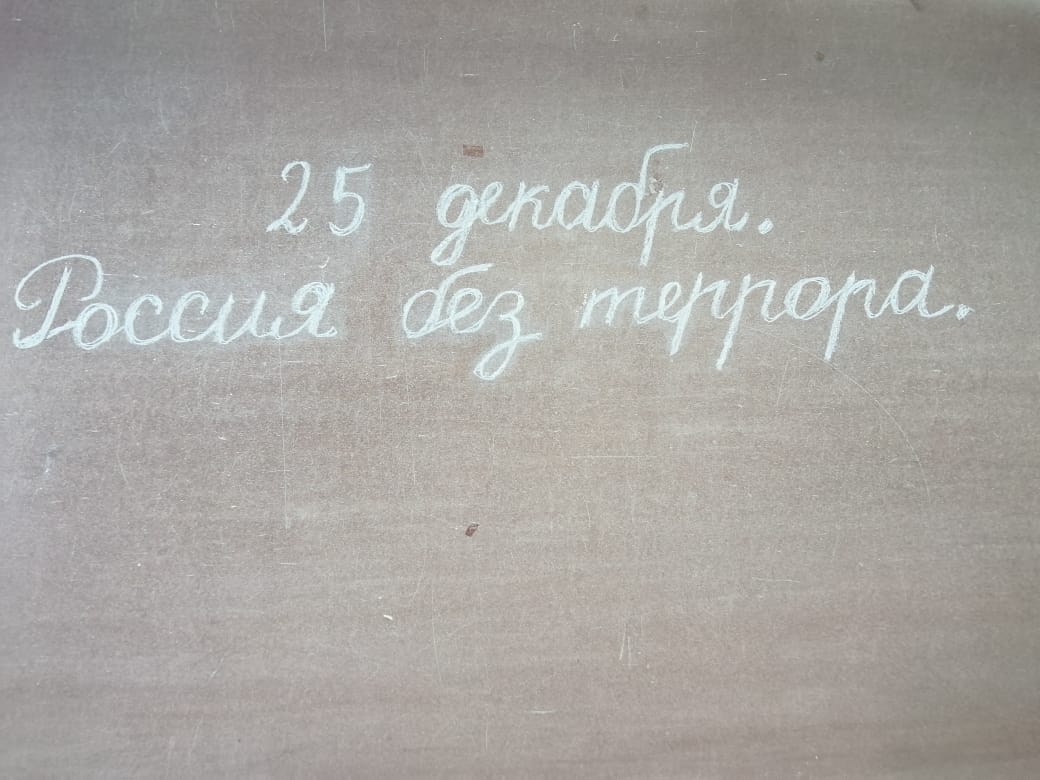 25 декабря.
Россия без террора.